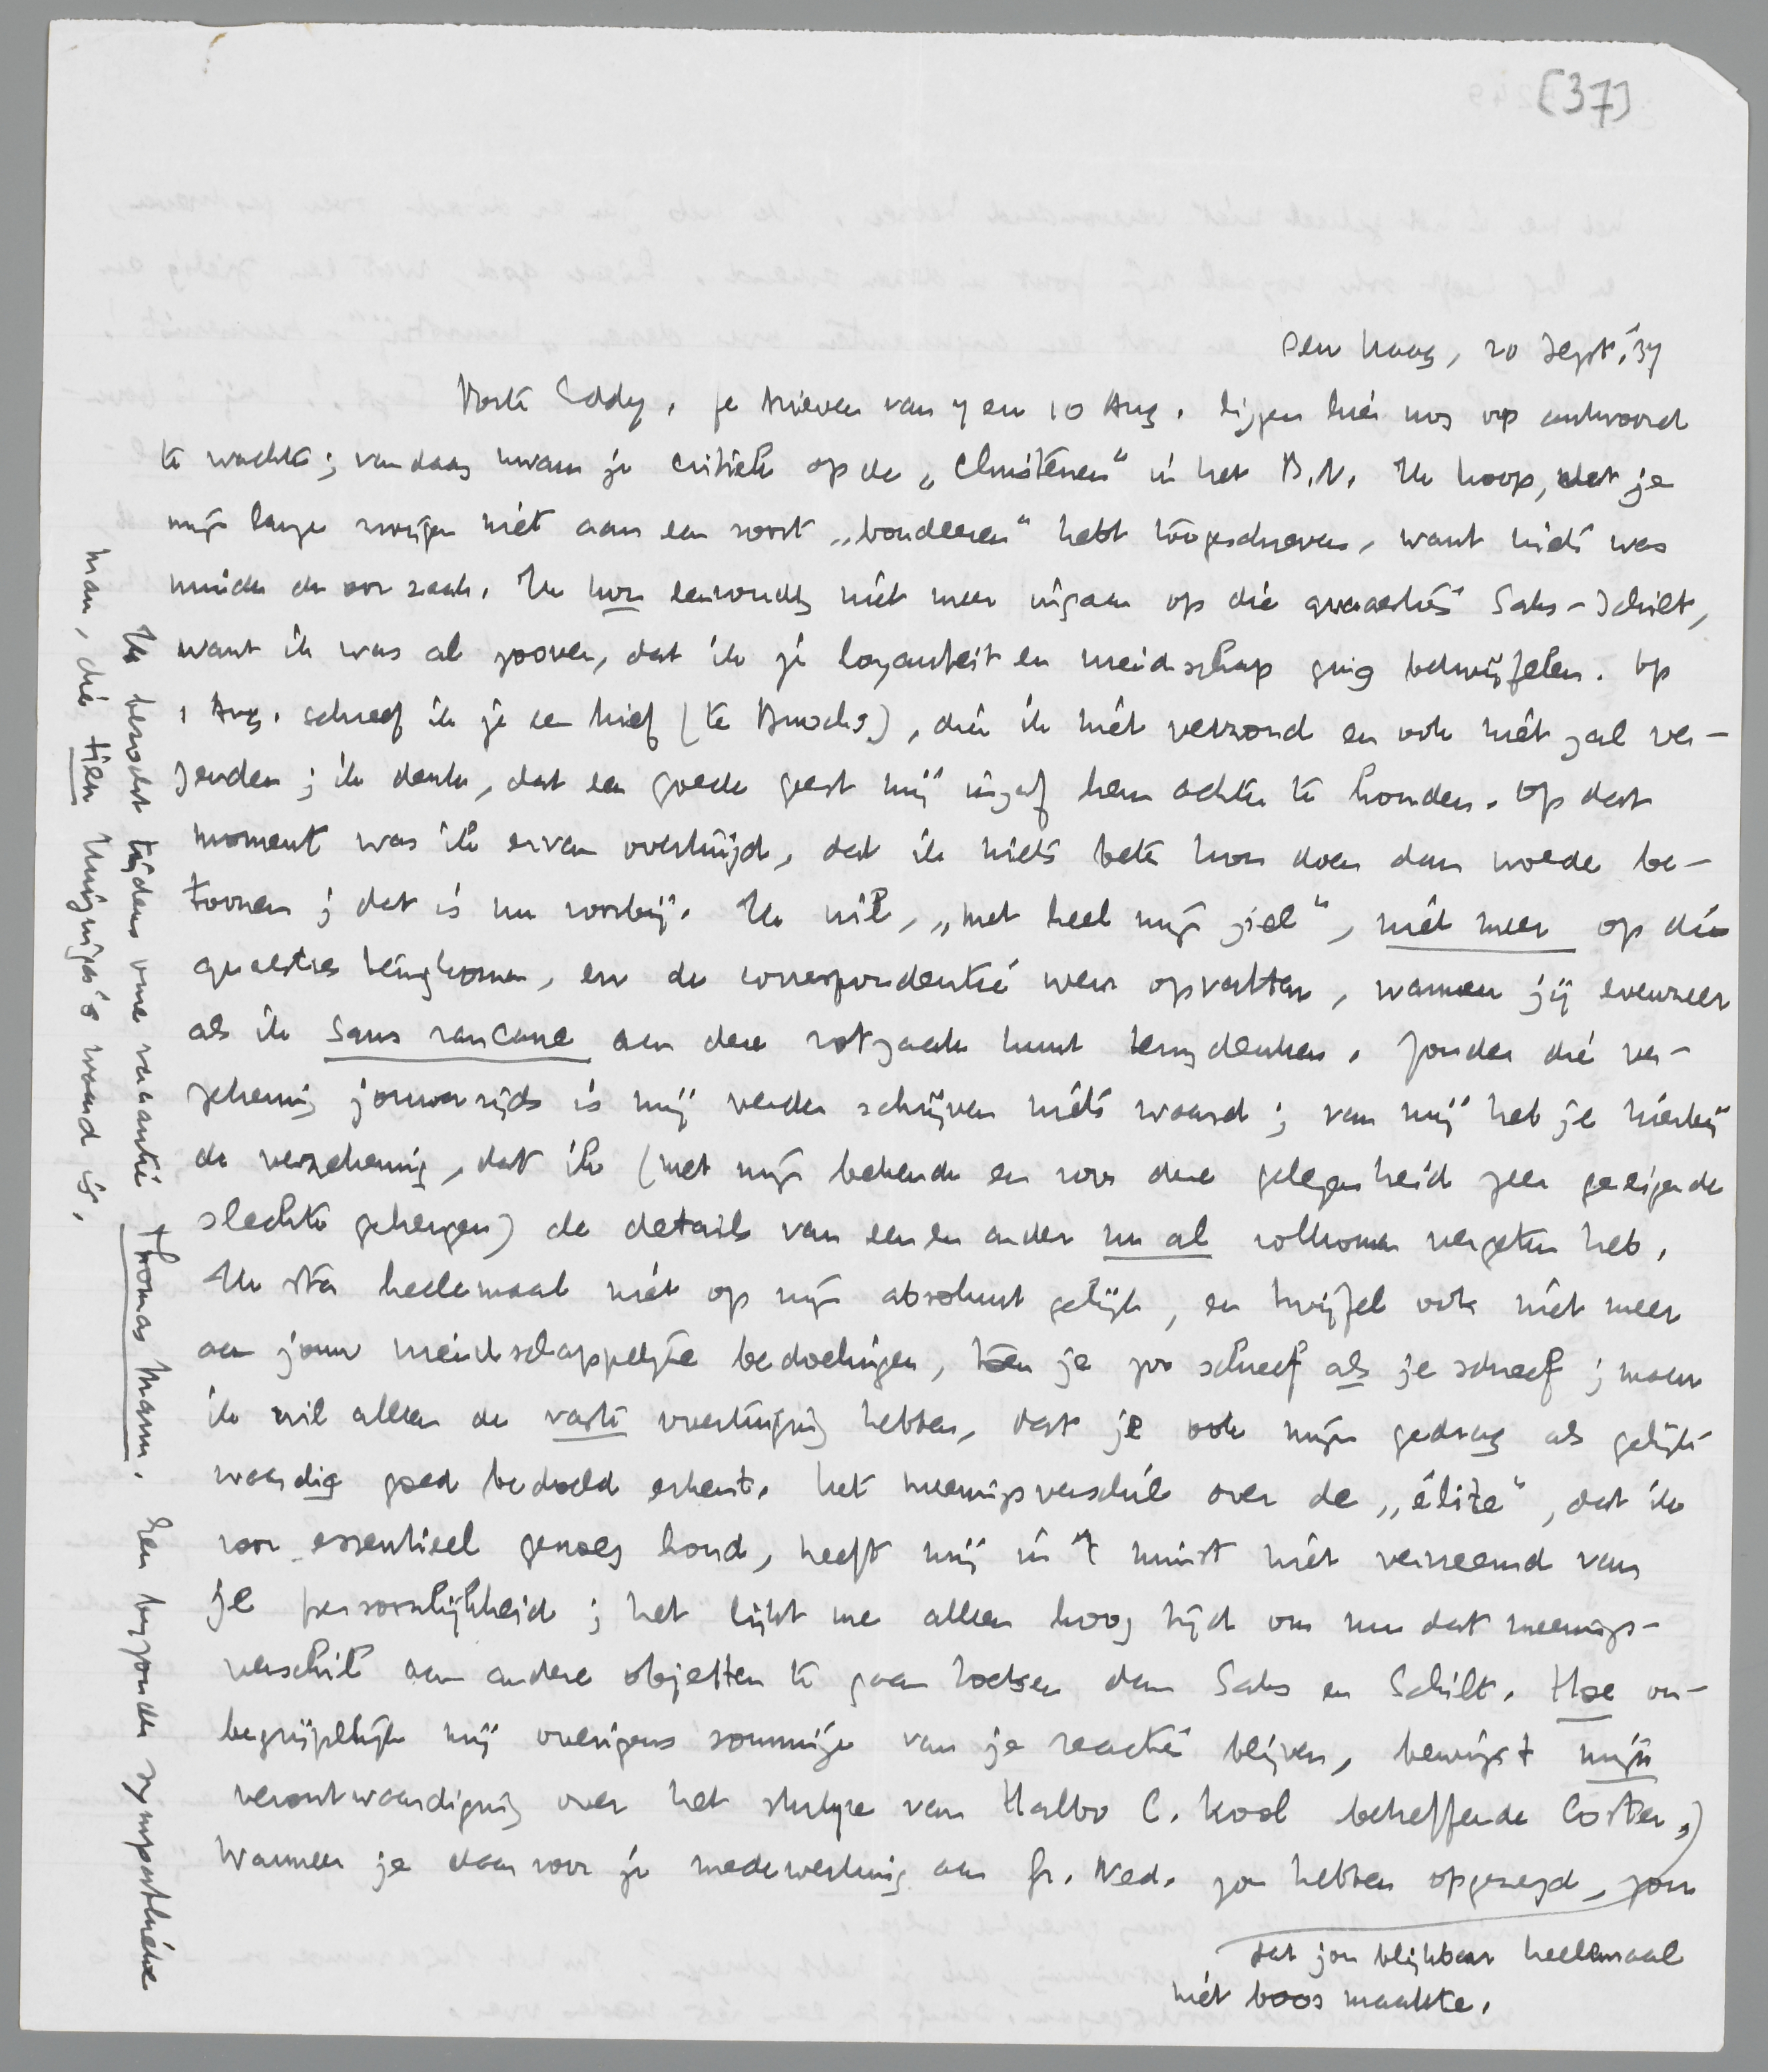 [37]
Den Haag, 20 Sept. '37
Beste Eddy, je brieven van 7 en 10 Aug. liggen hier nog op antwoord
te wachten; vandaag kwam je critiek op de „Christenen" in het B.N. Ik hoop, dat je
mijn lange zwijgen niet aan een soort „boudeeren" hebt toegeschreven, want niets was
minder de oorzaak. Ik kon eenvoudig niet meer ingaan op die quaesties Saks-Schilt,
want ik was al zoover, dat ik je loyauteit en vriendschap ging betwijfelen. Op
1 Aug. schreef ik je een brief (te Amocks), die ik niet verzond en ook niet zal ver-
zenden; ik denk, dat een goede geest mij ingaf hem achter te houden. Op dat
moment was ik ervan overtuigd, dat ik niets beter kon doen dan woede be-
toonen; dat is nu voorbij. Ik wil, „met heel mijn ziel", niet meer op die
quaesties terugkomen, en de correspondentie weer opvatten, wanneer jij evenzeer
als ik sans rancune aan deze rotzaak kunt terugdenken. Zonder die ver-
zekering jouwerzijds is mij verder schrijven niets waard; van mij heb je hierbij
de verzekering, dat ik (met mijn bekende en voor deze gelegenheid zeer geëigende
slechte geheugen) de details van een en ander nu al volkomen vergeten heb.
Ik sta heelemaal niet op mijn absoluut gelijk, en twijfel ook niet meer
aan jouw vriendschappelijke bedoelingen, toen je zoo schreef als je schreef; maar
ik wil alleen de vaste overtuiging hebben, dat je ook mijn gedrag als gelijk-
waardig goed bedoeld erkent. Het meeningsverschil over de „élite", dat ik
voor essentieel genoeg houd, heeft mij in 't minst niet vervreemd van
je persoonlijkheid; het lijkt me alleen hoog tijd om nu dat meenings-
verschil aan andere objecten te gaan toetsen dan Saks en Schilt. Hoe on-
begrijpelijk mij overigens sommige van je reacties blijven, bewijst mijn
verontwaardiging over het stukje van Halbo C. Kool betreffende Coster,)
Wanneer je daarvoor je medewerking aan Gr. Ned. zou hebben opgezegd, zou
dat jou blijkbaar heelemaal
niet boos maakte.
Ik bezocht tijdens onze vacantie Thomas Mann. Een bijzonder sympathieke
man, die tien Huizinga's waard is.